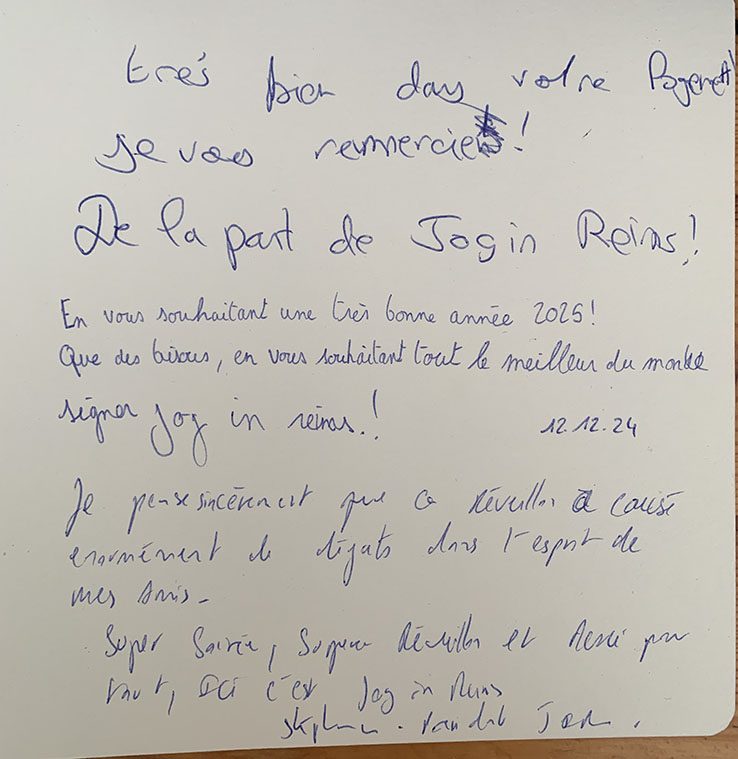 très bien dans votre
je vous remmercie !
De la part de Jog in Reims !
En vous souhaitant une très bonne année 2025 !
Que des bisous, en vous souhaitant tout le meilleur du monde
signer jog in reims. !
12.12.24
Je pense sincèrement que ce Réveillon a causé
enormément de dégats dans l'esprit de
mes amis -
Super Soirée, Super Réveillon et Merci pour
tout, Ici c'est Jog in Reims